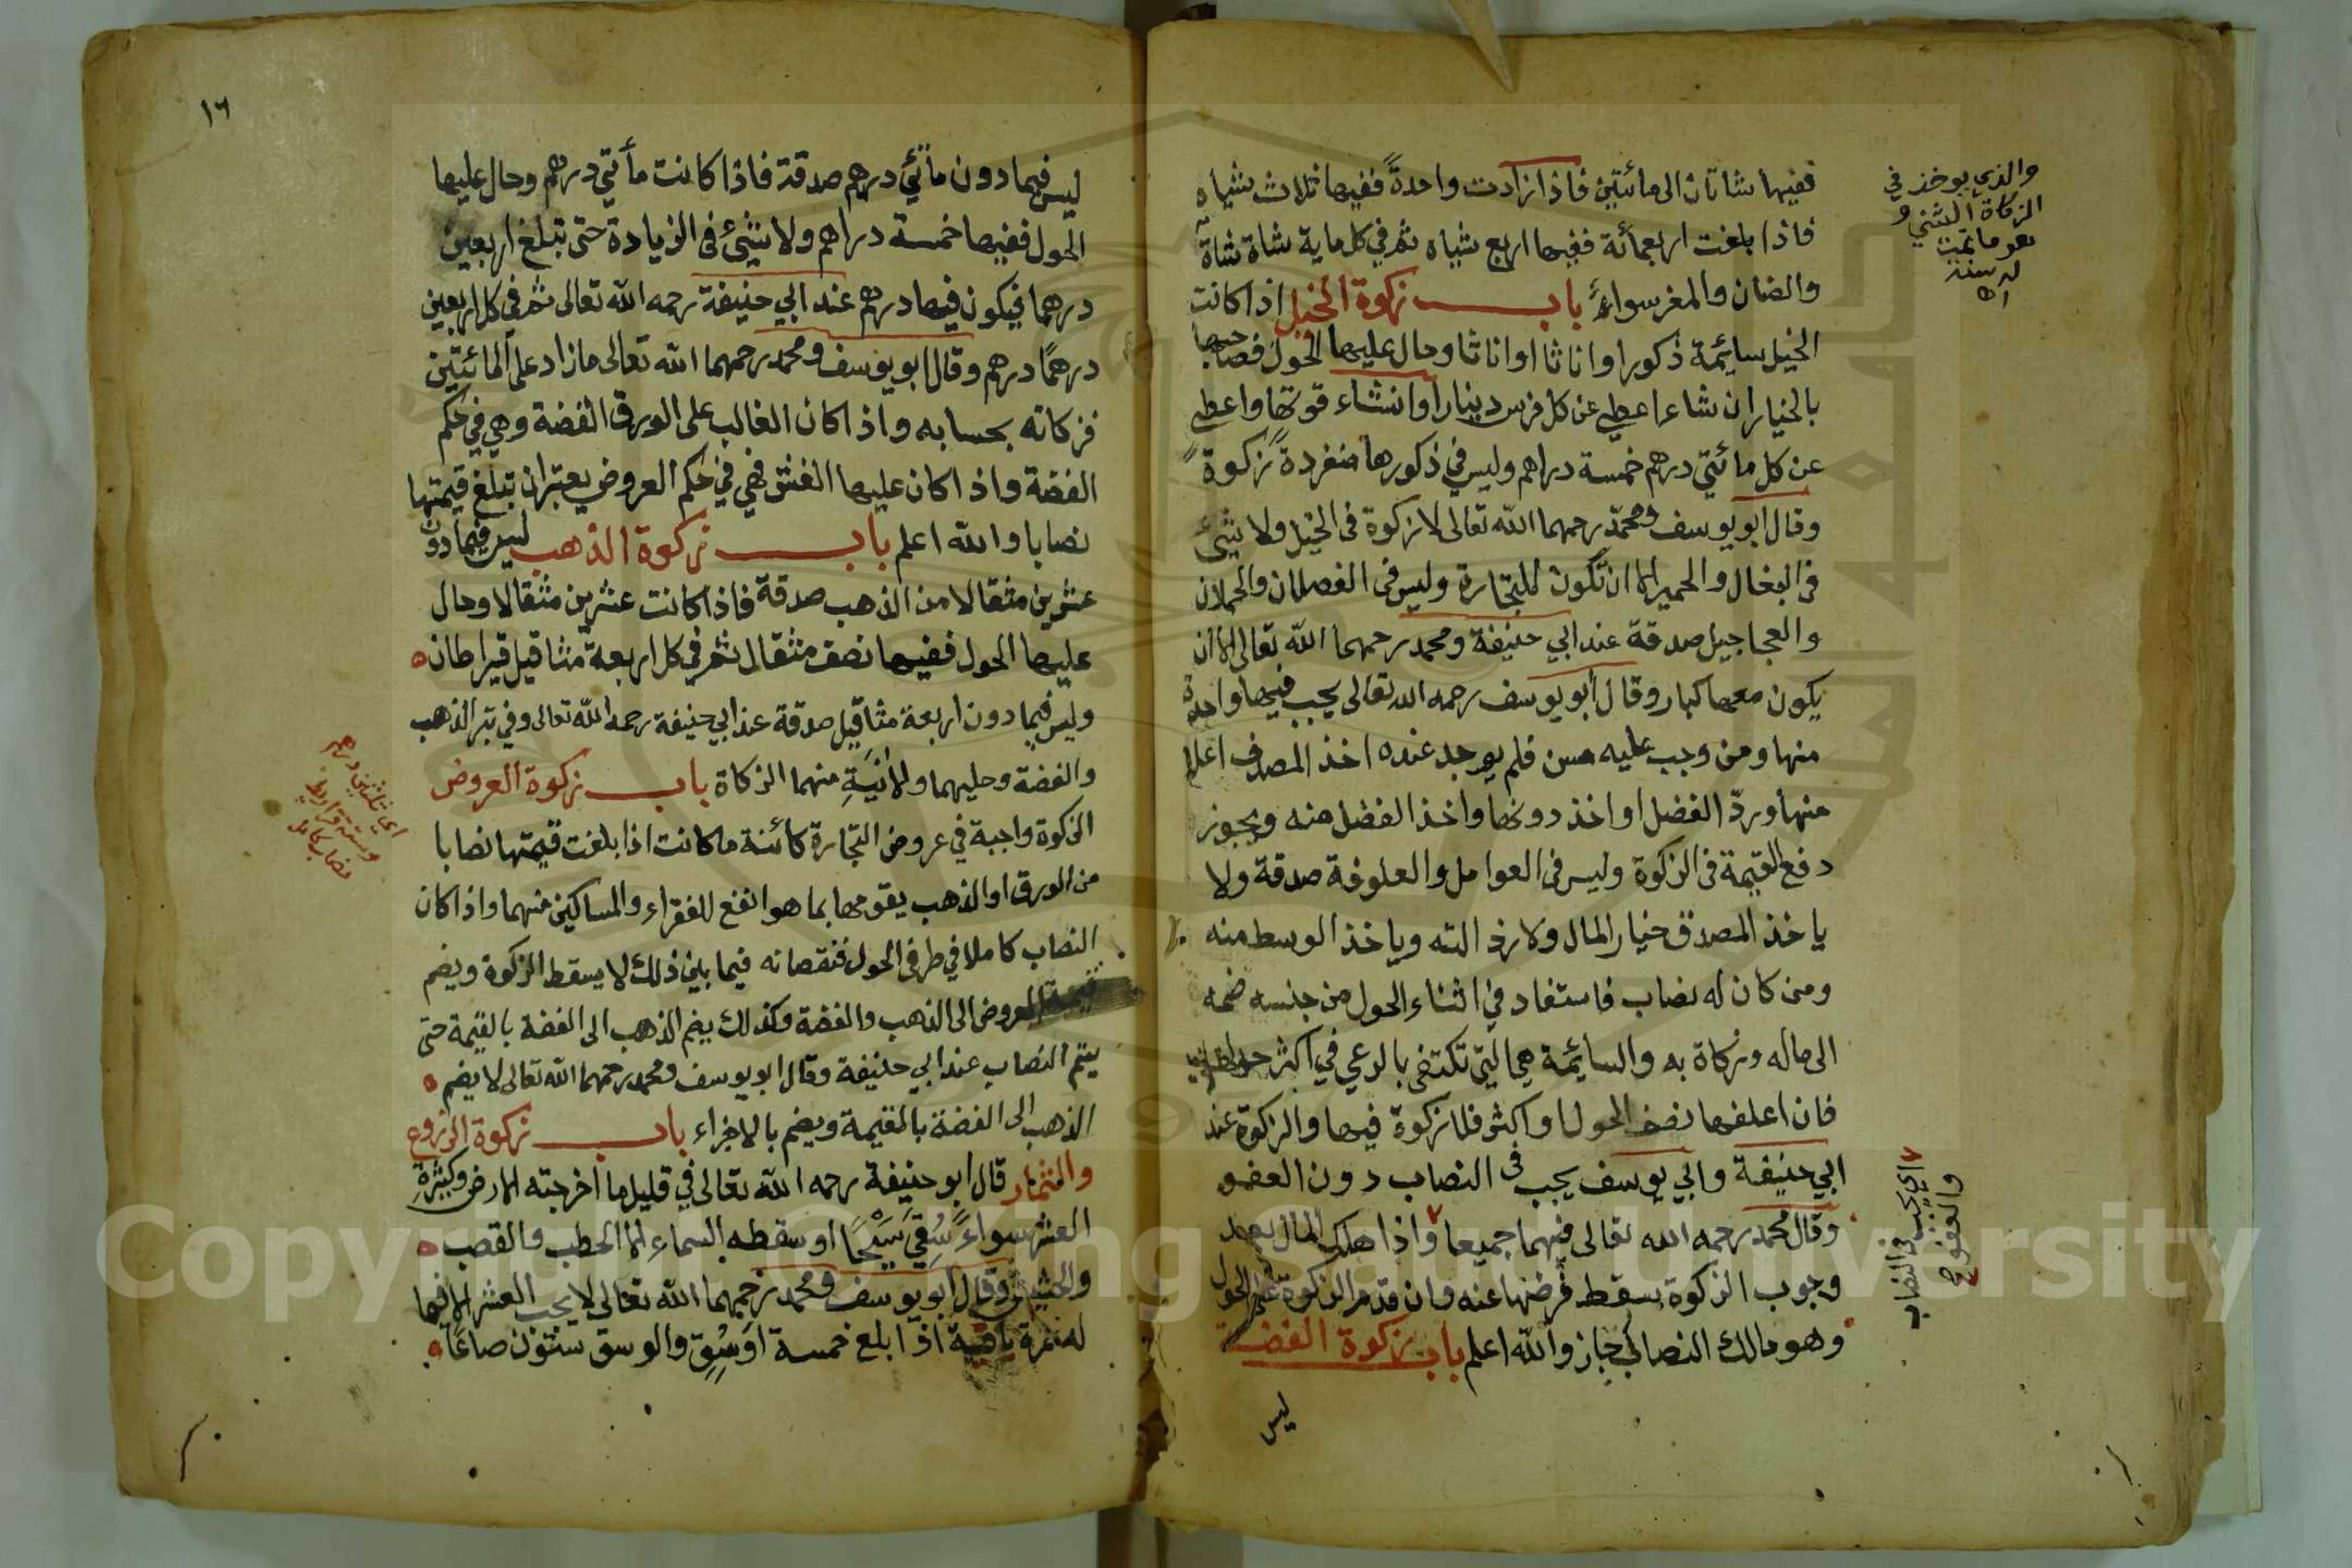 ففيها شاتان الى مائتين فاذا زادت واحدةً ففيها ثلاث شياه
فاذا بلغت اربعمائة ففيها اربع شياه ثم في كل ماية شاة شاة
والضان والمغر سواءٌ باب زكوة الخيل اذا كانت
الخيل سايمة ذكورا وانا ثا اوانا ثا وحال عليها الحول فصاحبها
بالخيار ان شاء اعطي عن كل فرس دينارا وانشاء قومها واعطي
عن كل مائتي درهم خمسة دراهم وليس في ذكورها منفردةً زكوة
وقال ابو يوسف ومحمد رحمهما الله تعالى لا زكوة فى الخيل ولا شئ
فى البغال والحمير الا ان تكون للتجارة وليس فى الفصلان والحملان
والعجاجيل صدقة عند ابي حنيفة ومحمد رحمهما الله تعالى الا ان
يكون معها كبار وقال ابو يوسف رحمه الله تعالى يجب فيها واحدة
منها ومن وجب عليه مسن فلم يوجد عنده اخذ المصدق اعلا
منها وردّ الفضل او اخذ دونها واخذ الفضل منه ويجوز
دفع القيمة فى الزكوة وليس فى العوامل والعلوفة صدقة ولا
ياخذ المصدق خيار المال ولا رذالته وياخذ الوسط منه
ومن كان له نصاب فاستفاد في اثناء الحول من جنسه ضمه
الى ماله وزكاة به والسايمة هي التي تكتفى بالرعي في اكثر
فان اعلفها نصف الحول او اكثر فلا زكوة فيها والزكوة عند
ابي حنيفة وابي يوسف يجب فى النصاب دون العفو
وقال محمد رحمه الله تعالى فيهما جميعا واذا هلك المال بعد
وجوب الزكوة يسقط فرضها عنه وان قدم الزكوة على الحول
وهو مالك النصاب جاز والله اعلم باب زكوة الفضة
ليس
والذي يوخذ في
الزكاة الثني و
هو ما تمت
له سنة
اه
اي يجب في النصاب
والعفو
١٦
ليس فيما دون مأتي درهم صدقة فاذا كانت مأتي درهم وحال عليها
الحول ففيها خمسة دراهم ولا شئ فى الزيادة حتى تبلغ اربعين
درهما فيكون فيها درهم عند ابي حنيفة رحمه الله تعالى ثم في كل اربعين
درهمًا درهم وقال ابو يوسف ومحمد رحمهما الله تعالى ما زاد على المائتين
فزكاته بحسابه واذا كان الغالب على الورق الفضة وهي في حكم
الفضة واذا كان عليها الغش فهي في حكم العروض يعتبر ان تبلغ قيمتها
نصابا والله اعلم باب زكوة الذهب ليس فيما دون
عشرين مثقالا من الذهب صدقة فاذا كانت عشرين مثقالا وحال
عليها الحول ففيها نصف مثقال ثم في كل اربعة مثاقيل قيراطان
وليس فيما دون اربعة مثاقيل صدقة عند ابي حنيفة رحمه الله تعالى وفي تبر الذهب
والفضة وحليهما والانيَةِ منهما الزكاة باب زكوة العروض
الزكوة واجبة في عروض التجارة كائنة ما كانت اذا بلغت قيمتها نصابا
من الورق او الذهب يقومها بما هو انفع للفقراء والمساكين منهما واذا كان
النصاب كاملا في طرفى الحول فنقصانه فيما بين ذلك لا يسقط الزكوة ويضم
قيمة العروض الى الذهب والفضة وكذلك يضم الذهب الى الفضة بالقيمة حتى
يتم النصاب عند ابي حنيفة وقال ابو يوسف ومحمد رحمهما الله تعالى لا يضم
الذهب الى الفضة بالقيمة ويضم بالاجزاء باب زكوة الزروع
والثمار قال ابو حنيفة رحمه الله تعالى في قليل ما اخرجته الارض وكثيرةِ
العشر سواءً سُقِيَ سَيْحًا او سقطه السماء الا الحطب والقصب
والحشيش وقال ابو يوسف ومحمد رحمهما الله تعالى لا يجب العشر الا فيما
له ثمرة باقية اذا بلغ خمسة اوسُق والوسق ستون صاعًا